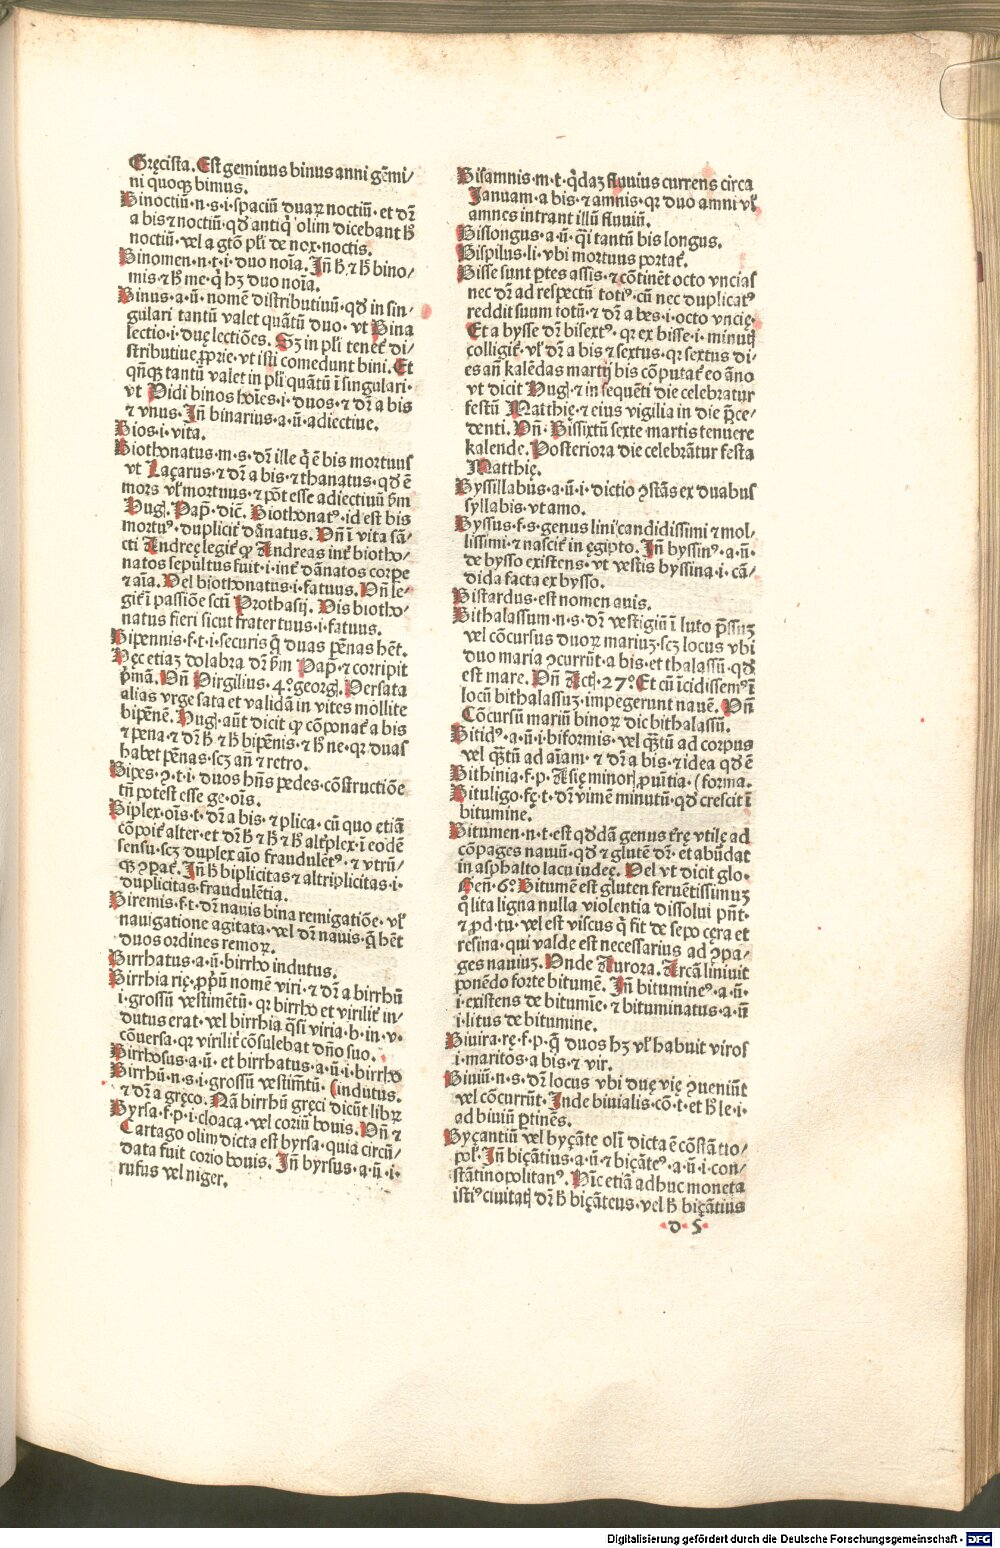 Gręcista. Est geminus binus anni gēmi/
ni quoqꝫ bimus.
Binoctiū·n·s·i·spaciū duaꝝ noctiū·et dr̄
a bis ⁊ noctiū·qđ antiq̇ olim dicebant ħ
noctiū·vel a gtō pl̄i de nox·noctis.
Binomen·n·t·i·duo noīa. Iñ ħ ⁊ ħ bino/
mis ⁊ ħ me·q̇ hꝫ duo noīa.
Binus·a·ū·nomē distributiuū·qđ in sin/
gulari tantū valet quātū duo·vt Bina
lectio·i·duę lectiōes. Sꝫ in pl̄i tenet̄ di/
stributiue ꝓprie·vt isti comedunt bini. Et
qn̄qꝫ tantū valet in pl̄i quātū ī singulari·
vt Vidi binos hoīes·i·duos·⁊ dr̄ a bis
⁊ vnus. Iñ binarius·a·ū·adiectiue.
Bios·i·vita.
Biothonatus·m·s·dr̄ ille q̇ ē bis mortuus
vt Laçarus·⁊ dr̄ a bis·⁊ thanatus·qđ ē
mors vl̄ mortuus·⁊ pōt esse adiectiuū ẜm
Hug. Pap̄·dic̄. Biothonatꝰ·id est bis
mortuꝰ·duplicit̄ dānatus. Vn̄ ī vita sā/
cti Andreę legit̄ ꝙ Andreas int̄ biotho/
natos sepultus fuit·i·int̄ dānatos corpe
⁊ aīa. Vel biothonatus·i·fatuus. Vn̄ le/
git̄ ī passiōe sctī Prothasij. Vis biotho/
natus fieri sicut frater tuus·i·fatuus.
Bipennis·f·t·i·securis q̄ duas pēnas hēt.
Hęc etiaꝫ dolabra dr̄ ẜm Pap̄·⁊ corripit
p̄mā. Vn̄ Virgilius·4.º georg. Versata
alias vrge sata et validā in vites mollite
bipēnē. Hug aūt dicit ꝙ cōponat̄ a bis
⁊ pena·⁊ dr̄ ħ ⁊ ħ bipēnis·⁊ ħ ne·qꝛ duas
habet pēnas·scꝫ añ ⁊ retro.
Bipes·ꝯ·t·i·duos hn̄s pedes·cōstructiōe
tn̄ potest esse ge·oīs.
Biplex·oīs·t·dr̄ a bis·⁊ plica·cū quo etiā
cōpoīt̄ alter·et dr̄ ħ ⁊ ħ ⁊ ħ alt̄plex·ī eodē
sensu·scꝫ duplex aīo fraudulētꝰ·⁊ vtrū/
qꝫ ꝯpat̄. Iñ ħ biplicitas ⁊ altriplicitas·i·
duplicitas·fraudulētia.
Biremis·f·t·dr̄ nauis bina remigatiōe·vl̄
nauigatione agitata·vel dr̄ nauis·q̄ hēt
duos ordines remoꝝ.
Birrhatus·a·ū·birrho indutus.
Birrhia rię·ꝓpriū nomē viri·⁊ dr̄ a birrhū
i·grossū vestimētū·qꝛ birrho et virilit̄ in/
dutus erat·vel birrhia q̄si viria·b·in·v·
cōuersa·qꝛ virilit̄ cōsulebat dn̄o suo.
Birrhosus·a·ū·et birrhatus·a·ū·i·birrho
Birrhū·n·s·i·grossū vestimētū. (indutus.
⁊ dr̄ a gręco. Nā birrhū gręci dicūt libꝝ
Byrsa·f·p·i·cloaca·vel coriū bouis. Vn̄ ⁊
Cartago olim dicta est byrsa·quia circū/
data fuit corio bouis. Iñ byrsus·a·ū·i·
rufus vel niger.
Bisamnis·m·t·q̇daꝫ fluuius currens circa
Ianuam·a bis·⁊ amnis·qꝛ duo amni vl̄
amnes intrant illū fluuiū.
Bislongus·a·ū·q̄i tantū bis longus.
Bispilus·li·vbi mortuus portat̄.
Bisse sunt ꝑtes assis·⁊ cōtinēt octo vncias
nec dr̄ ad respectū totiꝰ·cū nec duplicatꝰ
reddit suum totū·⁊ dr̄ a bes·i·octo vncię.
Et a bysse dr̄ bisextꝰ·qꝛ ex bisse·i·minutꝭ
colligit̄·vl̄ dr̄ a bis ⁊ sextus·qꝛ sextus di/
es añ kalēdas martij bis cōputat̄ eo āno
vt dicit Hug·⁊ in sequēti die celebratur
festū Matthię·⁊ eius vigilia in die p̄ce/
denti. Vn̄·Bissixtū sexte martis tenuere
kalende. Posteriora die celebrātur festa
Matthię.
Byssillabus·a·ū·i·dictio ꝯstās ex duabus
syllabis·vt amo.
Byssus·f·s·genus lini candidissimi ⁊ mol/
lissimi·⁊ nascit̄ in ęgipto. Iñ byssinꝰ·a·ū·
de bysso existens·vt vestis byssina·i·cā/
dida facta ex bysso.
Bistardus·est nomen auis.
Bithalassum·n·s·dr̄ vestigiū ī luto p̄ssuꝫ
vel cōcursus duoꝝ mariuꝫ·scꝫ locus vbi
duo maria ꝯcurrūt·a bis·et thalassū·qđ
est mare. Vn̄ Act·27.º Et cū īcidissemꝰ ī
locū bithalassuꝫ·impegerunt nauē. Vn̄
Cōcursū mariū binoꝝ dic bithalassū.
Bitidꝰ·a·ū·i·biformis·vel quātū ad corpus
vel quātū ad aīam·⁊ dr̄ a bis·⁊ idea qđ ē
Bithinia·f·p·Asię minorꝭ ꝓuītia·(forma.
Bituligo·fę·t·dr̄ vimē minutū·qđ crescit ī
bitumine.
Bitumen·n·t·est qđdā genus t̄rę vtile ad
cōpages nauiū·qđ ⁊ glutē dr̄·et abūdat
in asphalto lacu iudeę. Vel vt dicit glo.
Gen̄·6.º Bitumē est gluten feruētissimuꝫ
q̇ lita ligna nulla violentia dissolui pn̄t·
⁊ ꝓd·tu·vel est viscus q̇ fit de sepo cęra et
resina·qui valde est necessarius ad ꝯpa/
ges nauiuꝫ. Vnde Aurora. Arcā liniuit
ponēdo forte bitumē. Iñ bitumineꝰ·a·ū·
i·existens de bitumīe·⁊ bituminatus·a·ū
i·litus de bitumine.
Biuira·rę·f·p·q̄ duos hꝫ vl̄ habuit viros
i·maritos·a bis·⁊ vir.
Biuiū·n·s·dr̄ locus vbi duę vię ꝯueniūt
vel cōcurrūt. Inde biuialis·cō·t·et ħ le·i·
ad biuiū ꝑtinēs.
Byçantiū vel byçāte olī dicta ē cōstātio/
pol̄. Iñ biçātius·a·ū·⁊ biçāteꝰ·a·ū·i·con/
stātinopolitanꝰ. Hīc etiā adhuc moneta
istiꝰ ciuitatꝭ dr̄ ħ biçāteus·vel ħ biçātius
·d·5·
Digitalisierung gefördert durch die Deutsche Forschungsgemeinschaft - DFG